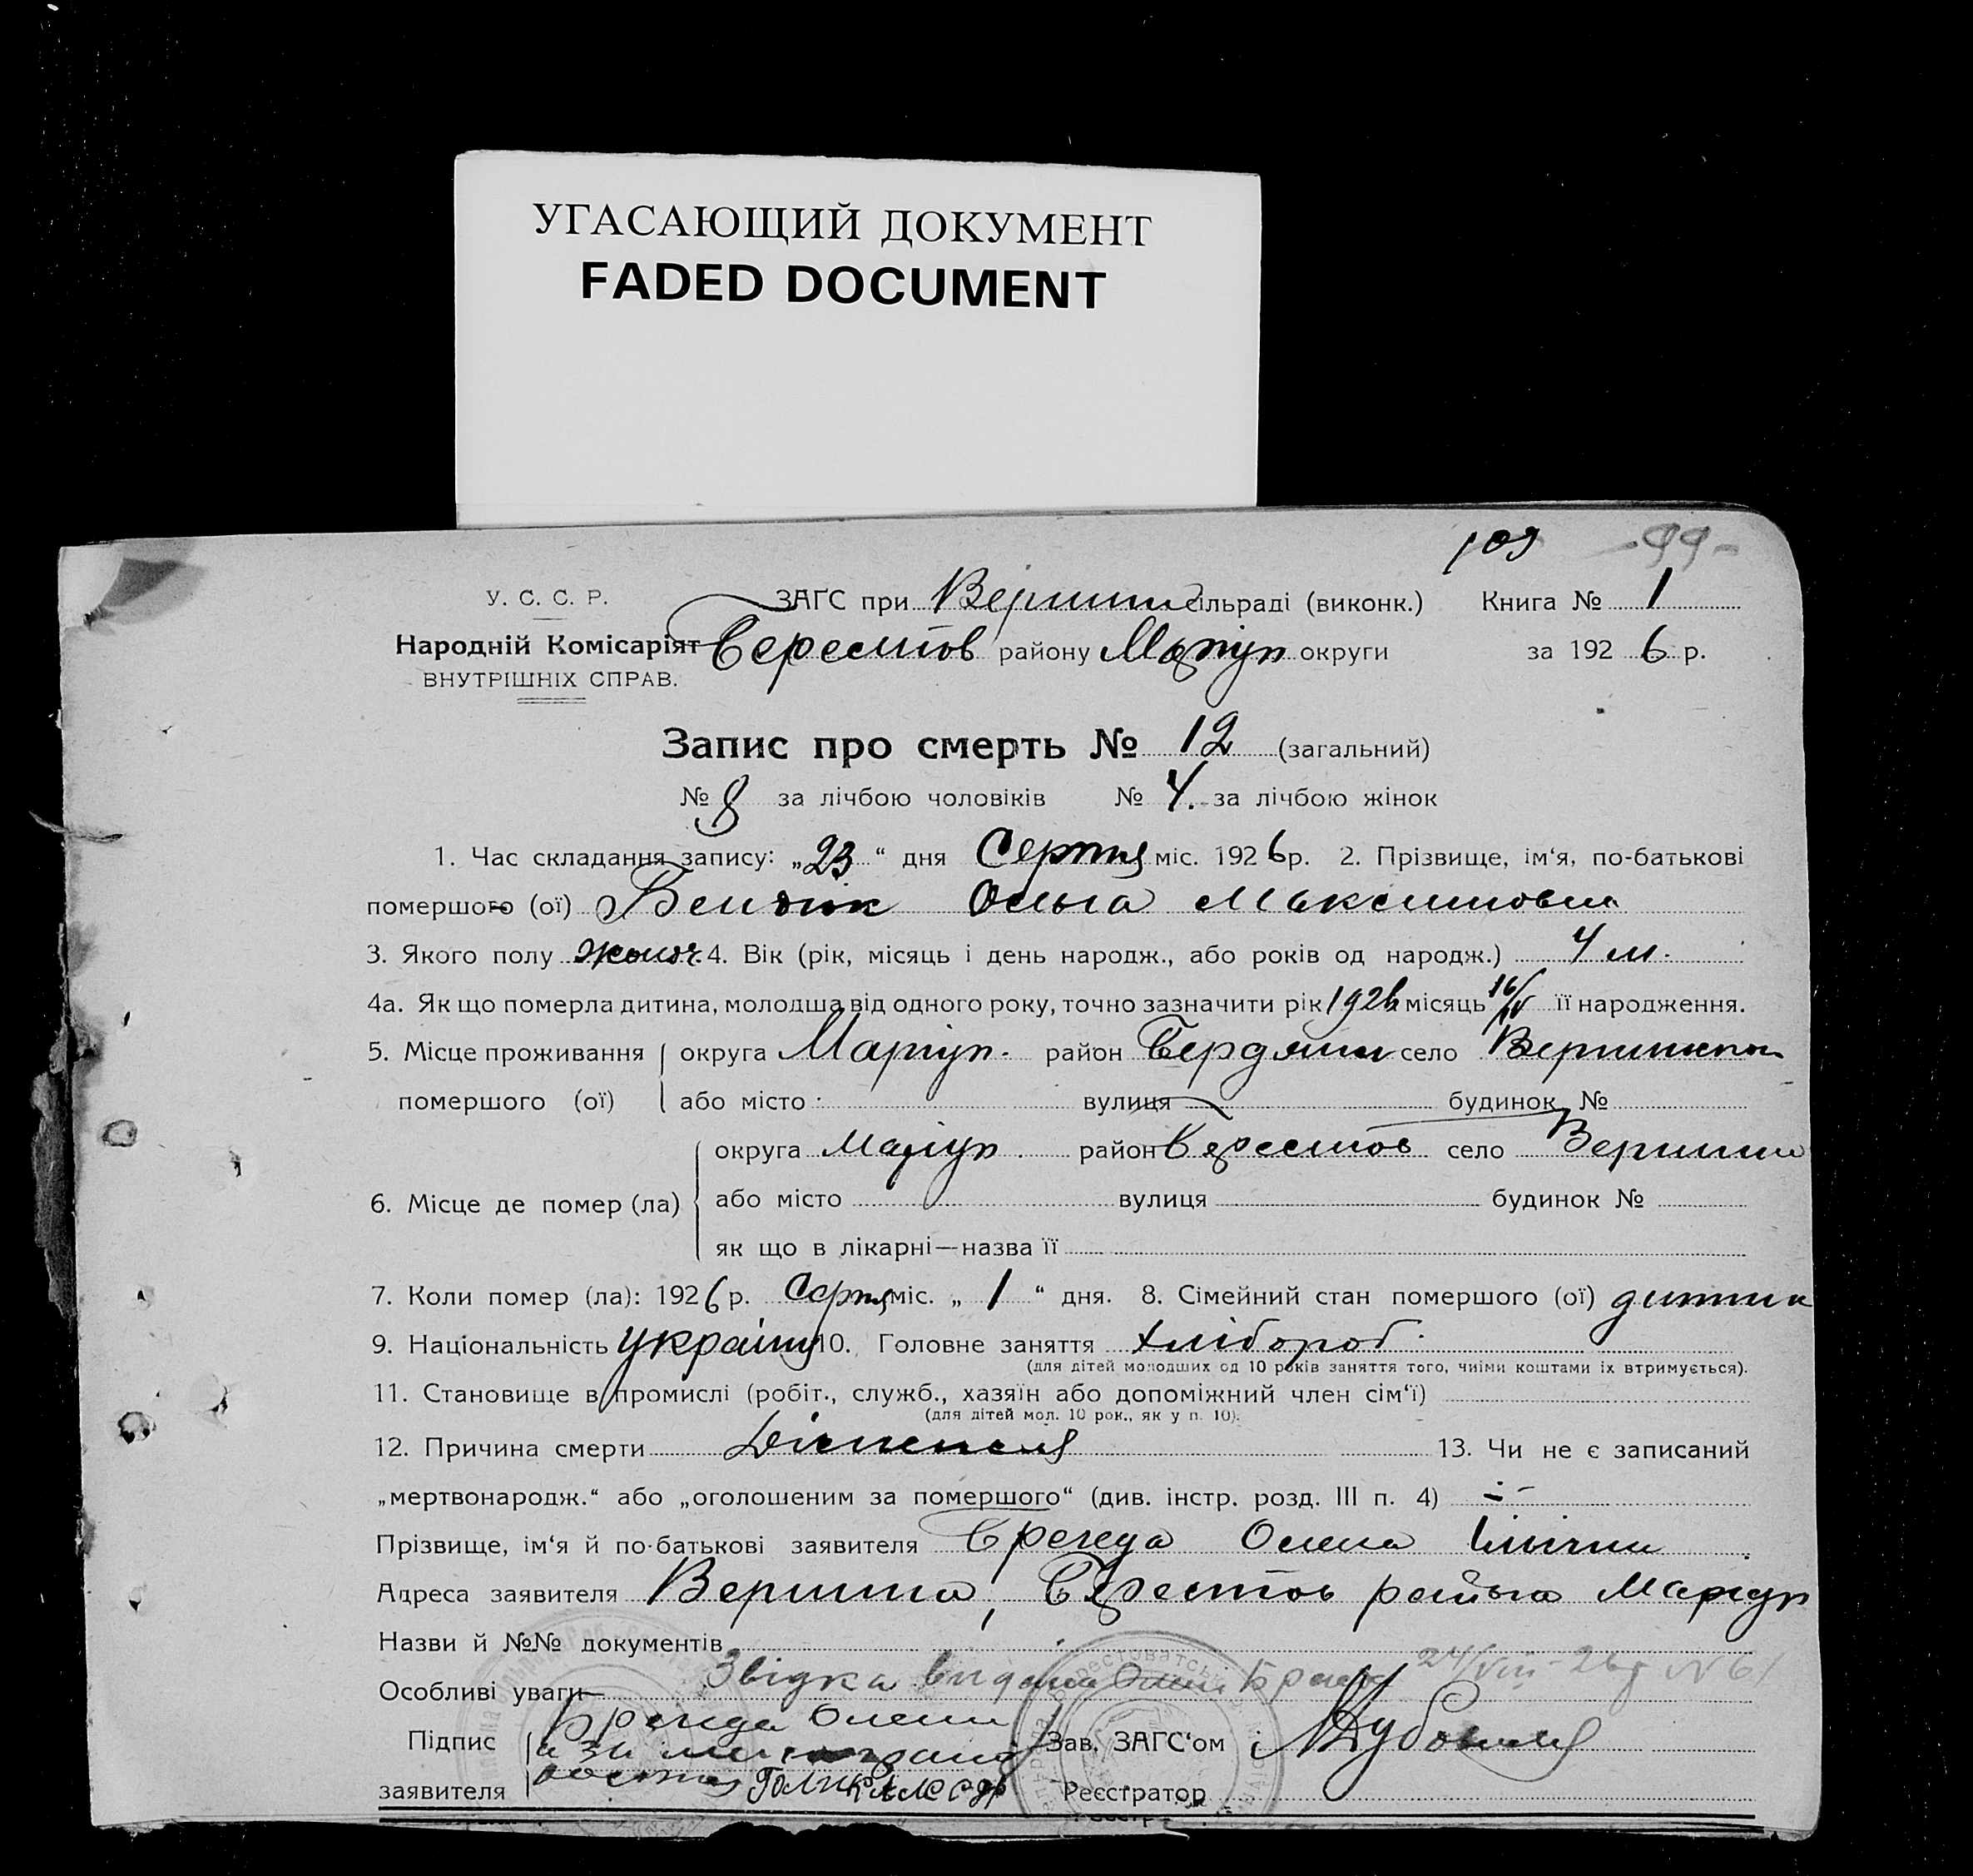 УГАСАЮЩИЙ ДОКУМЕНТ
FADED DOCUMENT
109 -99-
У. С. С. Р.
ЗАГС при Вершин сільраді (виконк.) Книга № 1
Народній Комісаріят Берестов району Маріуп округи за 1926 р.
ВНУТРІШНІХ СПРАВ.
Запис про смерть № 12 (загальний)
№ 8 за лічбою чоловіків № 4. за лічбою жінок
1. Час складання запису: „23“ дня Серпня міс. 1926 р. 2. Прізвище, ім‘я, по-батькові
помершого (ої) Ольга Максимовна
3. Якого полу жіноч. 4. Вік (рік, місяць і день народж., або років од народж.) 4 м.
4а. Як що померла дитина, молодша від одного року, точно зазначити рік 1926 місяць 16/IV її народження.
5. Місце проживання округа Маріуп. район село
помершого (ої) або місто вулиця будинок №
округа Маріуп. район Берестов село Вершини
6. Місце де помер (ла) або місто вулиця будинок №
як що в лікарні—назва її
7. Коли помер (ла): 1926 р. Серпня міс. „1“ дня. 8. Сімейний стан помершого (ої) дитина
9. Національність україн 10. Головне заняття хлібороб.
(для дітей молодших од 10 років заняття того, чиїми коштами їх втримується).
11. Становище в промислі (робіт., служб., хазяїн або допоміжний член сім‘ї)
(для дітей мол. 10 рок., як у п. 10).
12. Причина смерти 13. Чи не є записаний
„мертвонародж.“ або „оголошеним за помершого“ (див. інстр. розд. III п. 4) -
Прізвище, ім‘я й по-батькові заявителя Брегеда Олена
Адреса заявителя Вершина, Берестов району Маріуп
Назви й №№ документів
Особливі уваги Звідка видана Олені 24/VIII-26 р N 61
Підпис Брегеда Олени
а за Зав. ЗАГС‘ом
заявителя Реєстратор